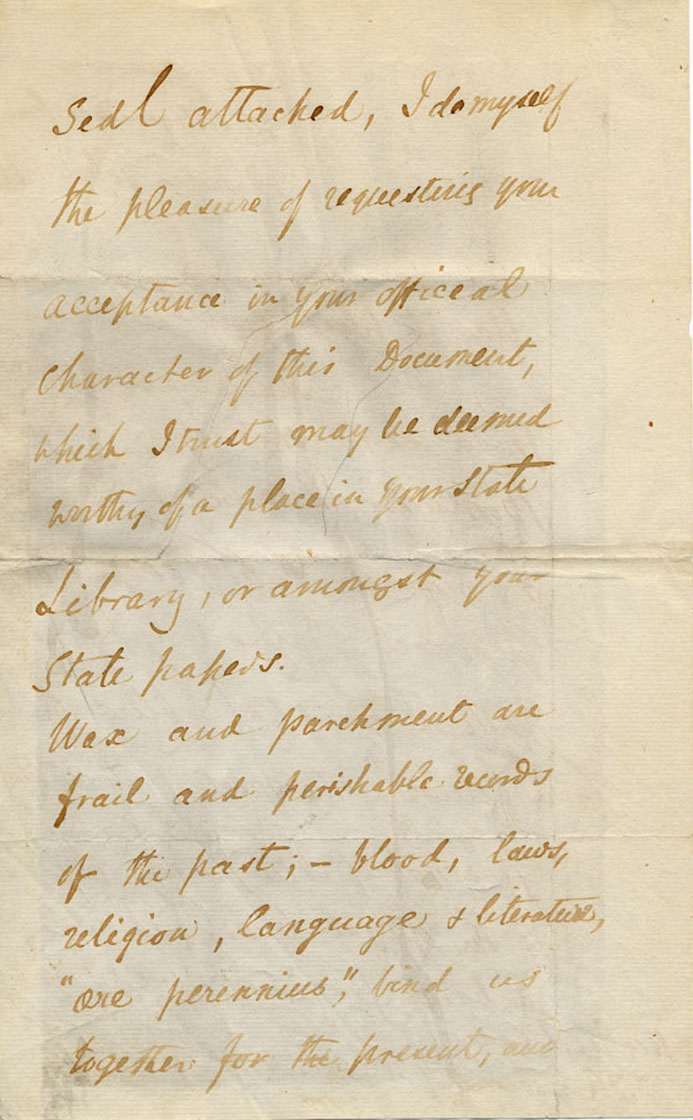 Seal attached, I do myself
the pleasure of requesting your
acceptance in your official
character of this Document,
which I trust may be deemed
worthy of a place in your State
Library, or amongst your
State papers.
Wax and parchment are
frail and perishable records
of the past; – blood, laws,
religion, language & literature,
"ære perennius", bind us
together for the present, and